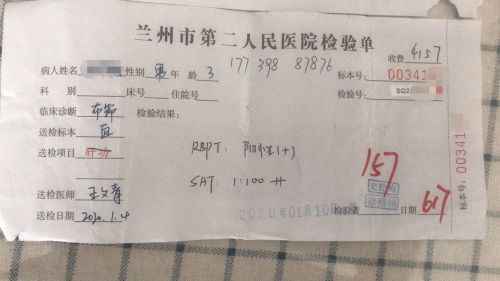 兰州市第二人民医院检验单
收费 4157
病人姓名 性别 男 年龄 3 177 398 87876 标本号: 00341
科别 床号 住院号 检验号:
临床诊断 布病 检验结果:
送检标本 血
送检项目 RBPT: 阳性(+)
SAT 1:100 ++
157
送检医师 王文尊
送检日期 2020.1.4 检验者 日期 617
标本号: 00341